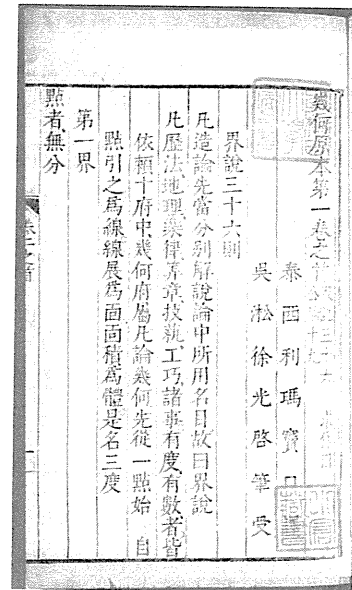 幾何原本第一卷之首
泰西利瑪竇口
吳淞徐光啓筆受
界說三十六則
凡造論先當分別解說論中所用名目故曰界說
凡歷法地理樂律算章技藝工巧諸事有度有數者皆
依賴十府中幾何府屬凡論幾何先從一點始自
點引之爲線線展爲面面積爲體是名三度
第一界
點者無分